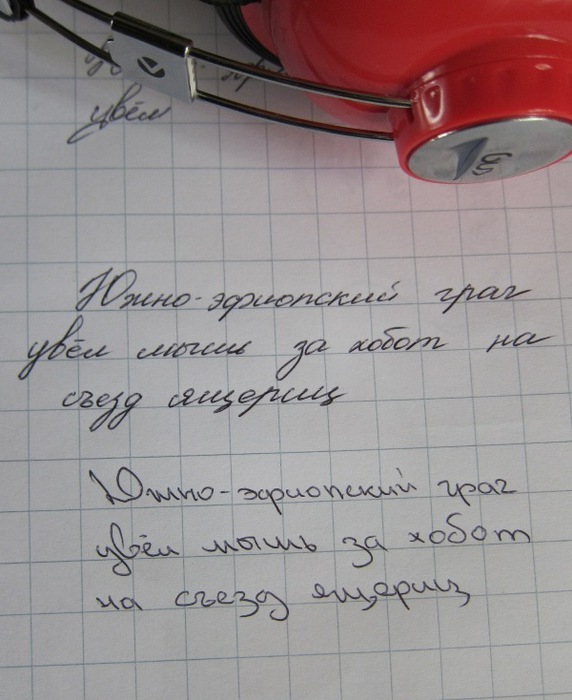 увём
Южно-эфиопский грач
увёл мышь за хобот на
съезд ящериц
Южно-эфиопский грач
увёл мышь за хобот
на съезд ящериц